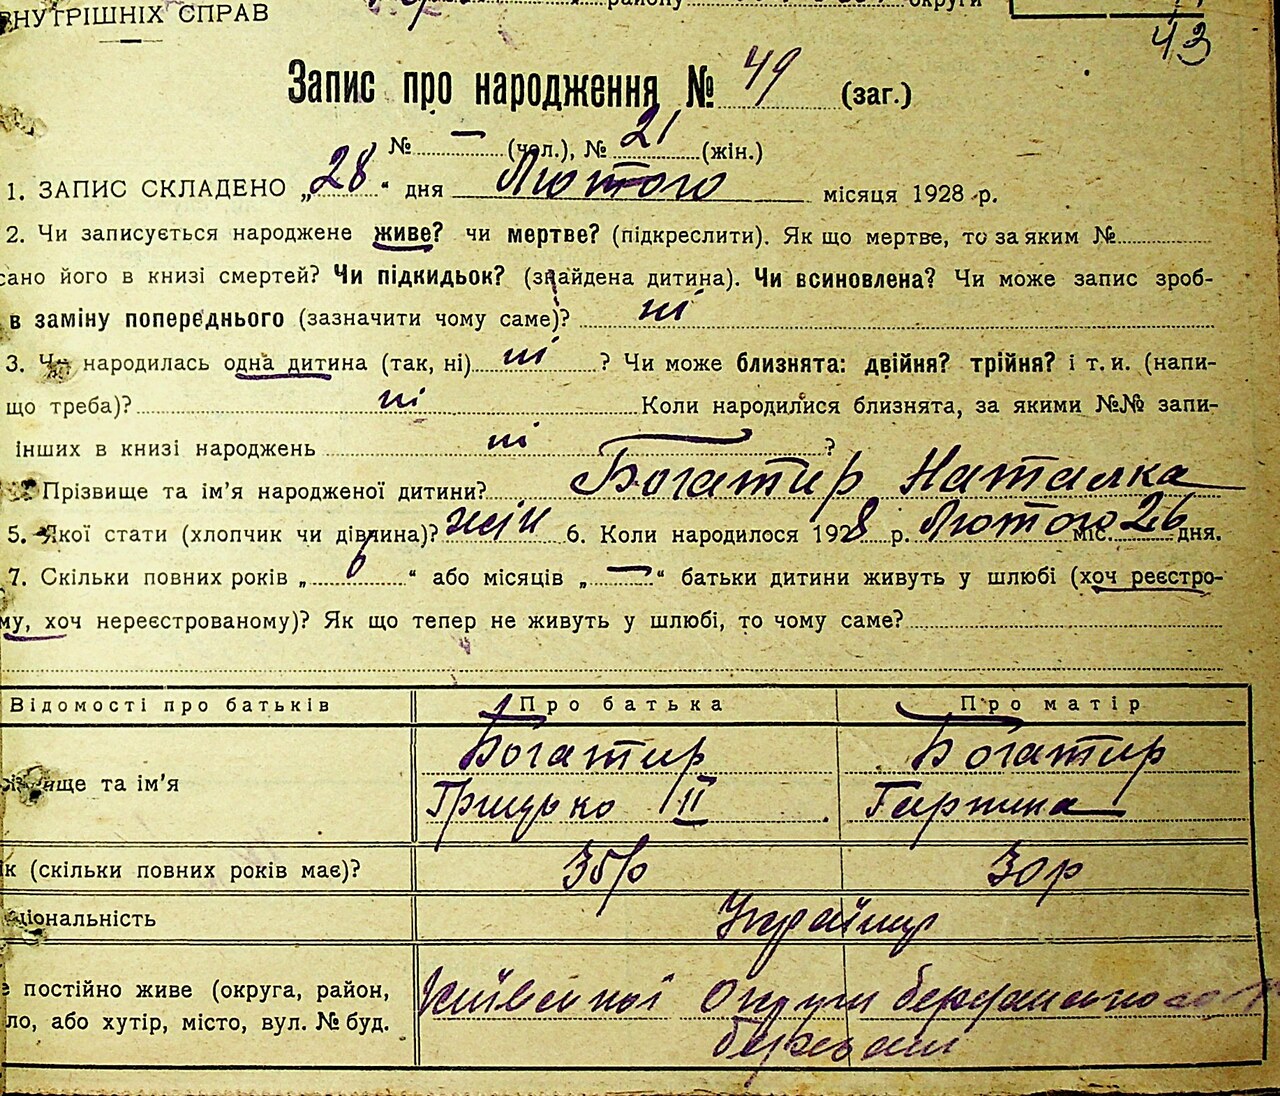 ВНУТРІШНІХ СПРАВ району округи
43
Запис про народження № 49 (заг.)
№ — (чол.), № 21 (жін.)
1. ЗАПИС СКЛАДЕНО „28“ дня Лютого місяця 1928 р.
2. Чи записується народжене живе? чи мертве? (підкреслити). Як що мертве, то за яким №
сано його в книзі смертей? Чи підкидьок? (знайдена дитина). Чи всиновлена? Чи може запис зроб-
в заміну попереднього (зазначити чому саме)? ні
3. Чи народилась одна дитина (так, ні) ні ? Чи може близнята: двійня? трійня? і т. и. (напи-
що треба)? ні Коли народилися близнята, за якими №№ запи-
інших в книзі народжень ні ?
Прізвище та ім’я народженої дитини? Богатир Наталка
5. Якої статі (хлопчик чи дівчина)? жін 6. Коли народилося 1928 р. Лютого міс. 26 дня.
7. Скільки повних років „ 6 “ або місяців „ — “ батьки дитини живуть у шлюбі (хоч реєстро-
му, хоч нереєстрованому)? Як що тепер не живуть у шлюбі, то чому саме?
Відомості про батьків Про батька Про матір
Богатир Богатир
ище та ім’я Грицько II Гарпина
к (скільки повних років має)? 35р 30р
ціональність Українці
е постійно живе (округа, район, Київської Округи
ло, або хутір, місто, вул. № буд.